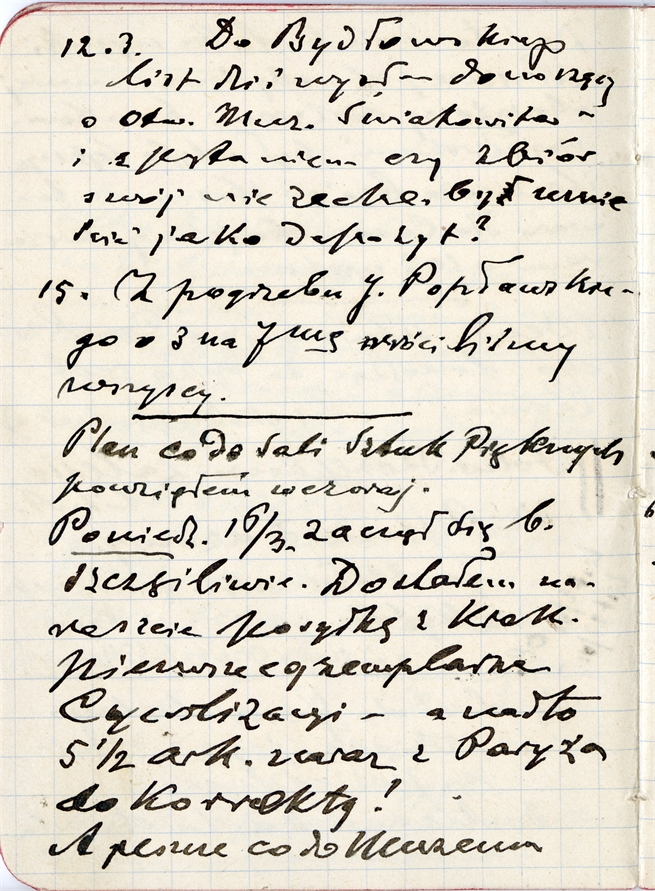 12.3. Do Bydłowskiego
list dziś wysłałem donoszący
o Otw. Muz. Światowita -
i z pytaniem czy zbiór
swój nie zechce być u mnie
jako depozyt?
15. Z pogrzebu J. Popławskie-
go o 3 na wróciliśmy
wszyscy.
Plan co do Sali Sztuk Pięknych
powziąłem wczoraj.
Poniedz. 16/3. zaczął się b.
szczęśliwie. Dostałem na-
reszcie posyłkę z Krak.
pierwsze egzemplarze
Cywilizacyi - a nadto
5 1/2 ark. naraz z Paryża
do Korrekty!
A pewne co do Muzeum